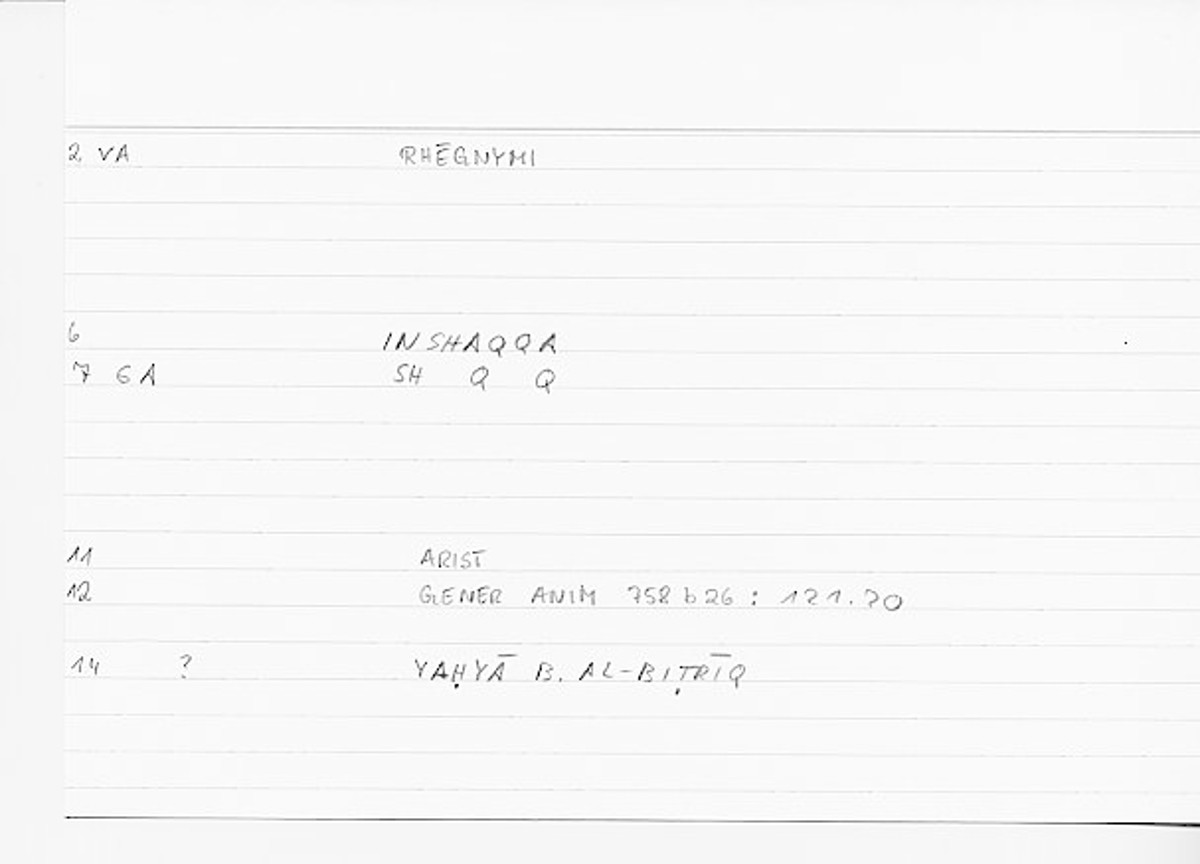 2 VA RHĒGNYMI
6 INSHAQQA
7 6A SH Q Q
11 ARIST
12 GENER ANIM 758 b 26 : 121.20
14 ? YAḤYĀ B. AL-BIṬRĪQ